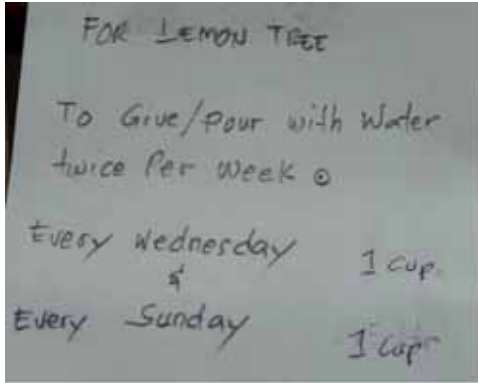 FOR LEMON TREE
To Give/Pour with Water
twice Per Week
Every Wednesday 1 cup.
&
Every Sunday 1 Cup